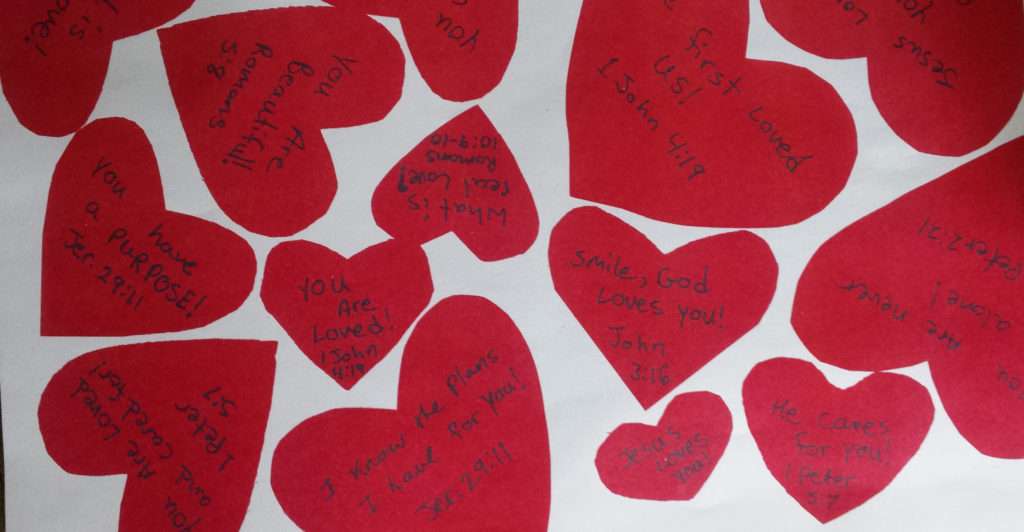 is
ove!
You
Are
Beautiful!
Romans
5:8
you
first Loved
us!
1 John 4:19
Jesus
Lo
yo
You
have
a PURPOSE!
Jer. 29:11
What is
real Love?
Romans
10:9-10
You
Are
Loved!
1 John
4:19
Smile, God
Loves you!
John
3:16
You
Are never
alone!
Peter 2:21
You
Are Loved
and cared for!
1 Peter
5:7
I know the plans
I have for you!
Jer. 29:11
Jesus
Loves
you!
He cares
for you!
1 Peter
5:7